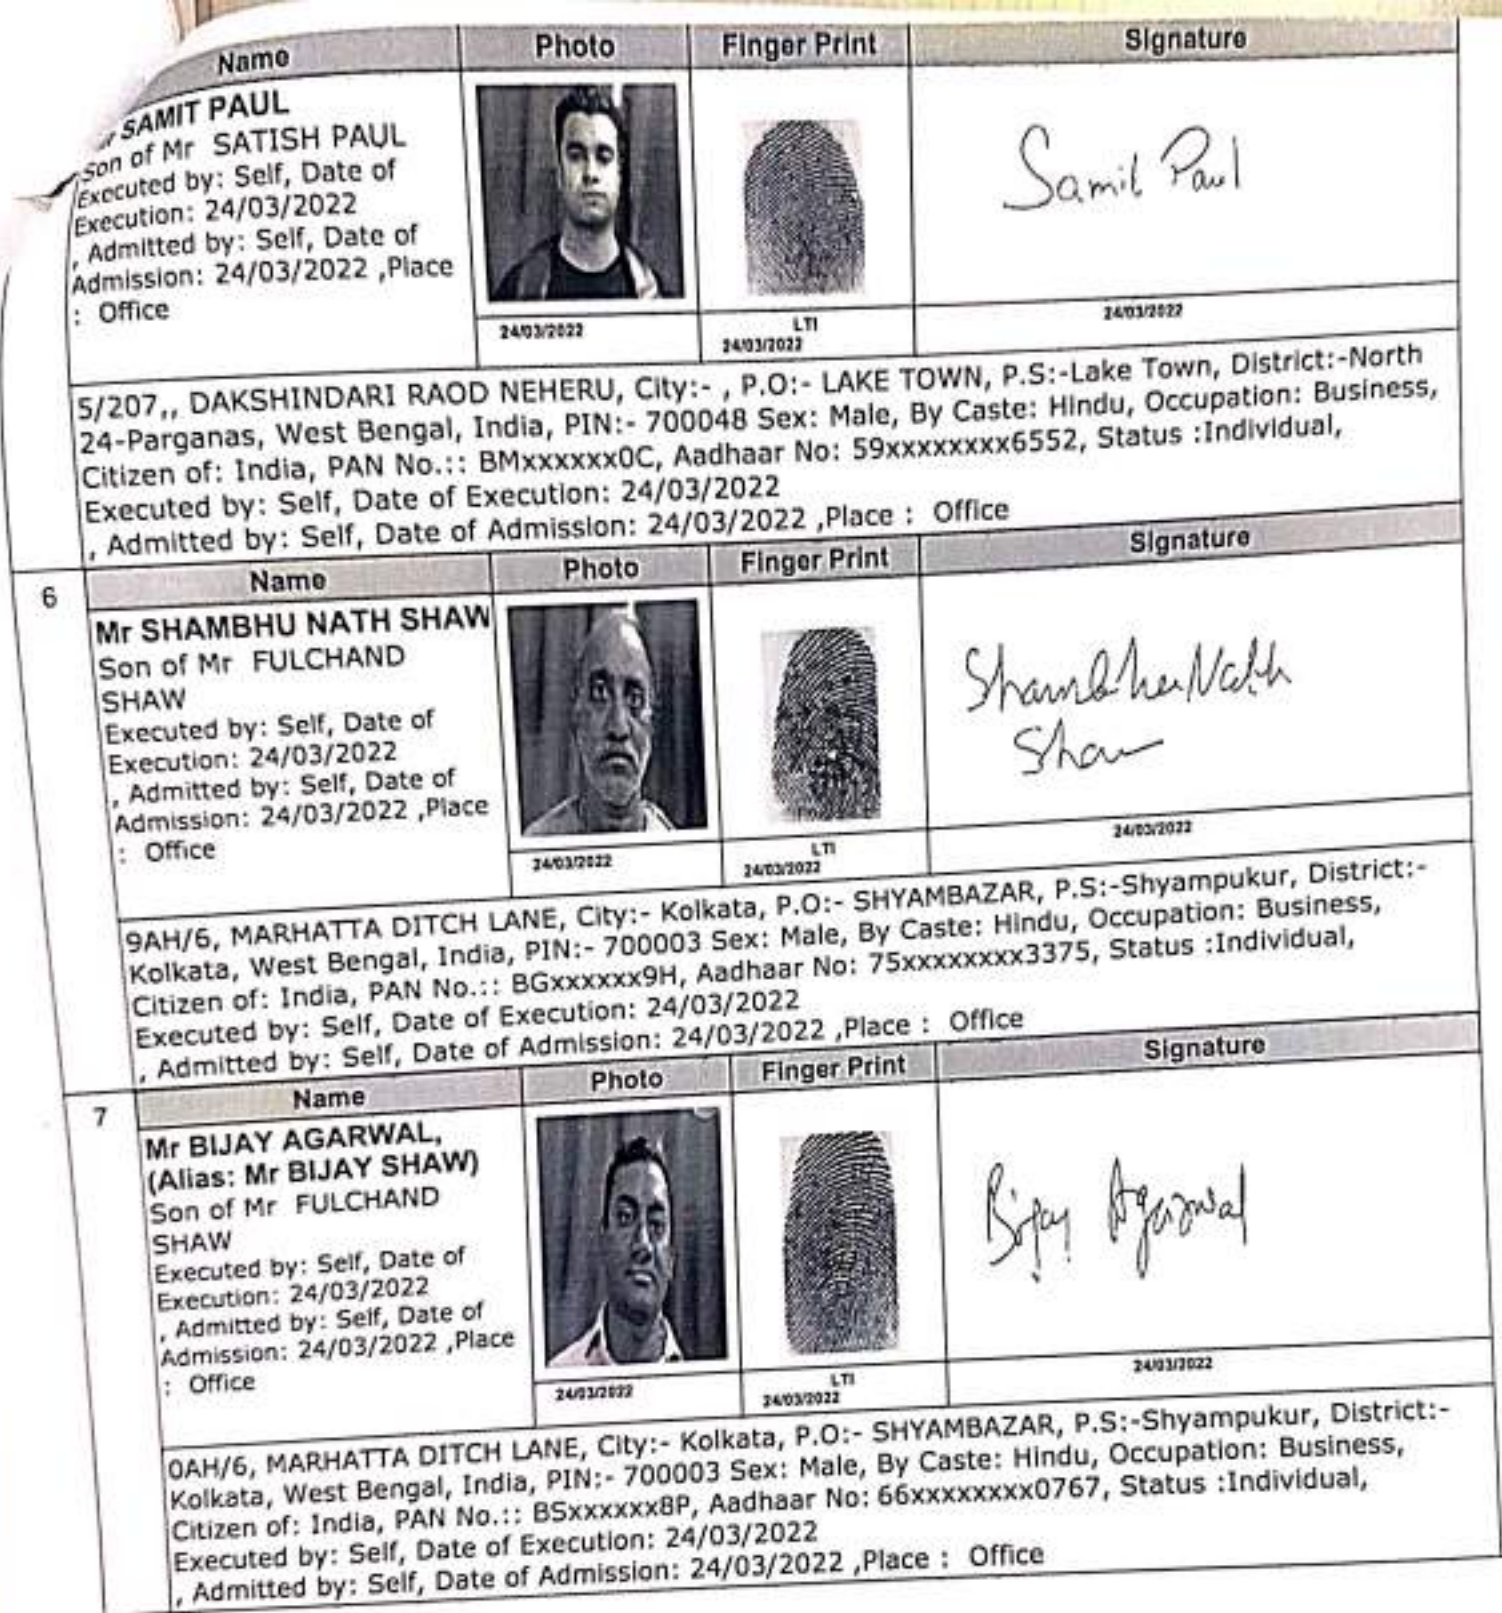 Name Photo Finger Print Signature
SAMIT PAUL
Son of Mr SATISH PAUL
Executed by: Self, Date of
Execution: 24/03/2022
, Admitted by: Self, Date of
Admission: 24/03/2022 ,Place
: Office
Samit Paul
24/03/2022
LTI
24/03/2022
24/03/2022
5/207,, DAKSHINDARI RAOD NEHERU, City:- , P.O:- LAKE TOWN, P.S:-Lake Town, District:-North
24-Parganas, West Bengal, India, PIN:- 700048 Sex: Male, By Caste: Hindu, Occupation: Business,
Citizen of: India, PAN No.:: BMxxxxxx0C, Aadhaar No: 59xxxxxxxx6552, Status :Individual,
Executed by: Self, Date of Execution: 24/03/2022
, Admitted by: Self, Date of Admission: 24/03/2022 ,Place : Office
6 Name Photo Finger Print Signature
Mr SHAMBHU NATH SHAW
Son of Mr FULCHAND
SHAW
Executed by: Self, Date of
Execution: 24/03/2022
, Admitted by: Self, Date of
Admission: 24/03/2022 ,Place
: Office
Shambhu Nath
Shaw
24/03/2022
LTI
24/03/2022
24/03/2022
9AH/6, MARHATTA DITCH LANE, City:- Kolkata, P.O:- SHYAMBAZAR, P.S:-Shyampukur, District:-
Kolkata, West Bengal, India, PIN:- 700003 Sex: Male, By Caste: Hindu, Occupation: Business,
Citizen of: India, PAN No.:: BGxxxxxx9H, Aadhaar No: 75xxxxxxxx3375, Status :Individual,
Executed by: Self, Date of Execution: 24/03/2022
, Admitted by: Self, Date of Admission: 24/03/2022 ,Place : Office
7 Name Photo Finger Print Signature
Mr BIJAY AGARWAL,
(Alias: Mr BIJAY SHAW)
Son of Mr FULCHAND
SHAW
Executed by: Self, Date of
Execution: 24/03/2022
, Admitted by: Self, Date of
Admission: 24/03/2022 ,Place
: Office
Bijay Agarwal
24/03/2022
LTI
24/03/2022
24/03/2022
0AH/6, MARHATTA DITCH LANE, City:- Kolkata, P.O:- SHYAMBAZAR, P.S:-Shyampukur, District:-
Kolkata, West Bengal, India, PIN:- 700003 Sex: Male, By Caste: Hindu, Occupation: Business,
Citizen of: India, PAN No.:: BSxxxxxx8P, Aadhaar No: 66xxxxxxxx0767, Status :Individual,
Executed by: Self, Date of Execution: 24/03/2022
, Admitted by: Self, Date of Admission: 24/03/2022 ,Place : Office